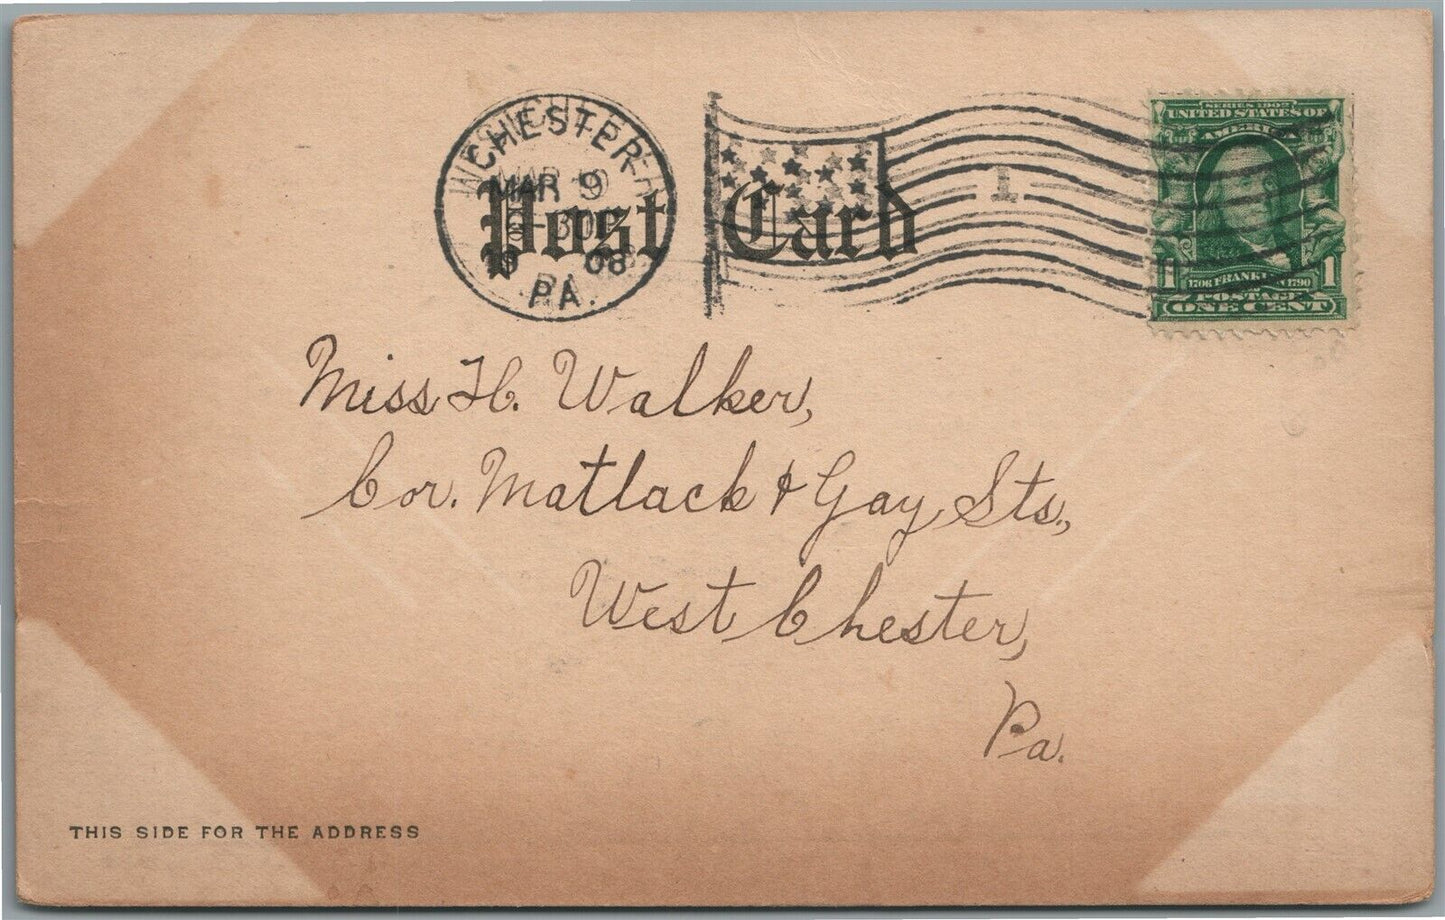 W. CHESTER
MAR 9
-30P
19 08
PA.
Post Card
1
SERIES 1902
UNITED STATES OF
AMERICA
1706 FRANKLIN 1790
1 1
POSTAGE
ONE CENT
Miss H. Walker,
Cor. Matlack & Gay Sts.,
West Chester,
Pa.
THIS SIDE FOR THE ADDRESS